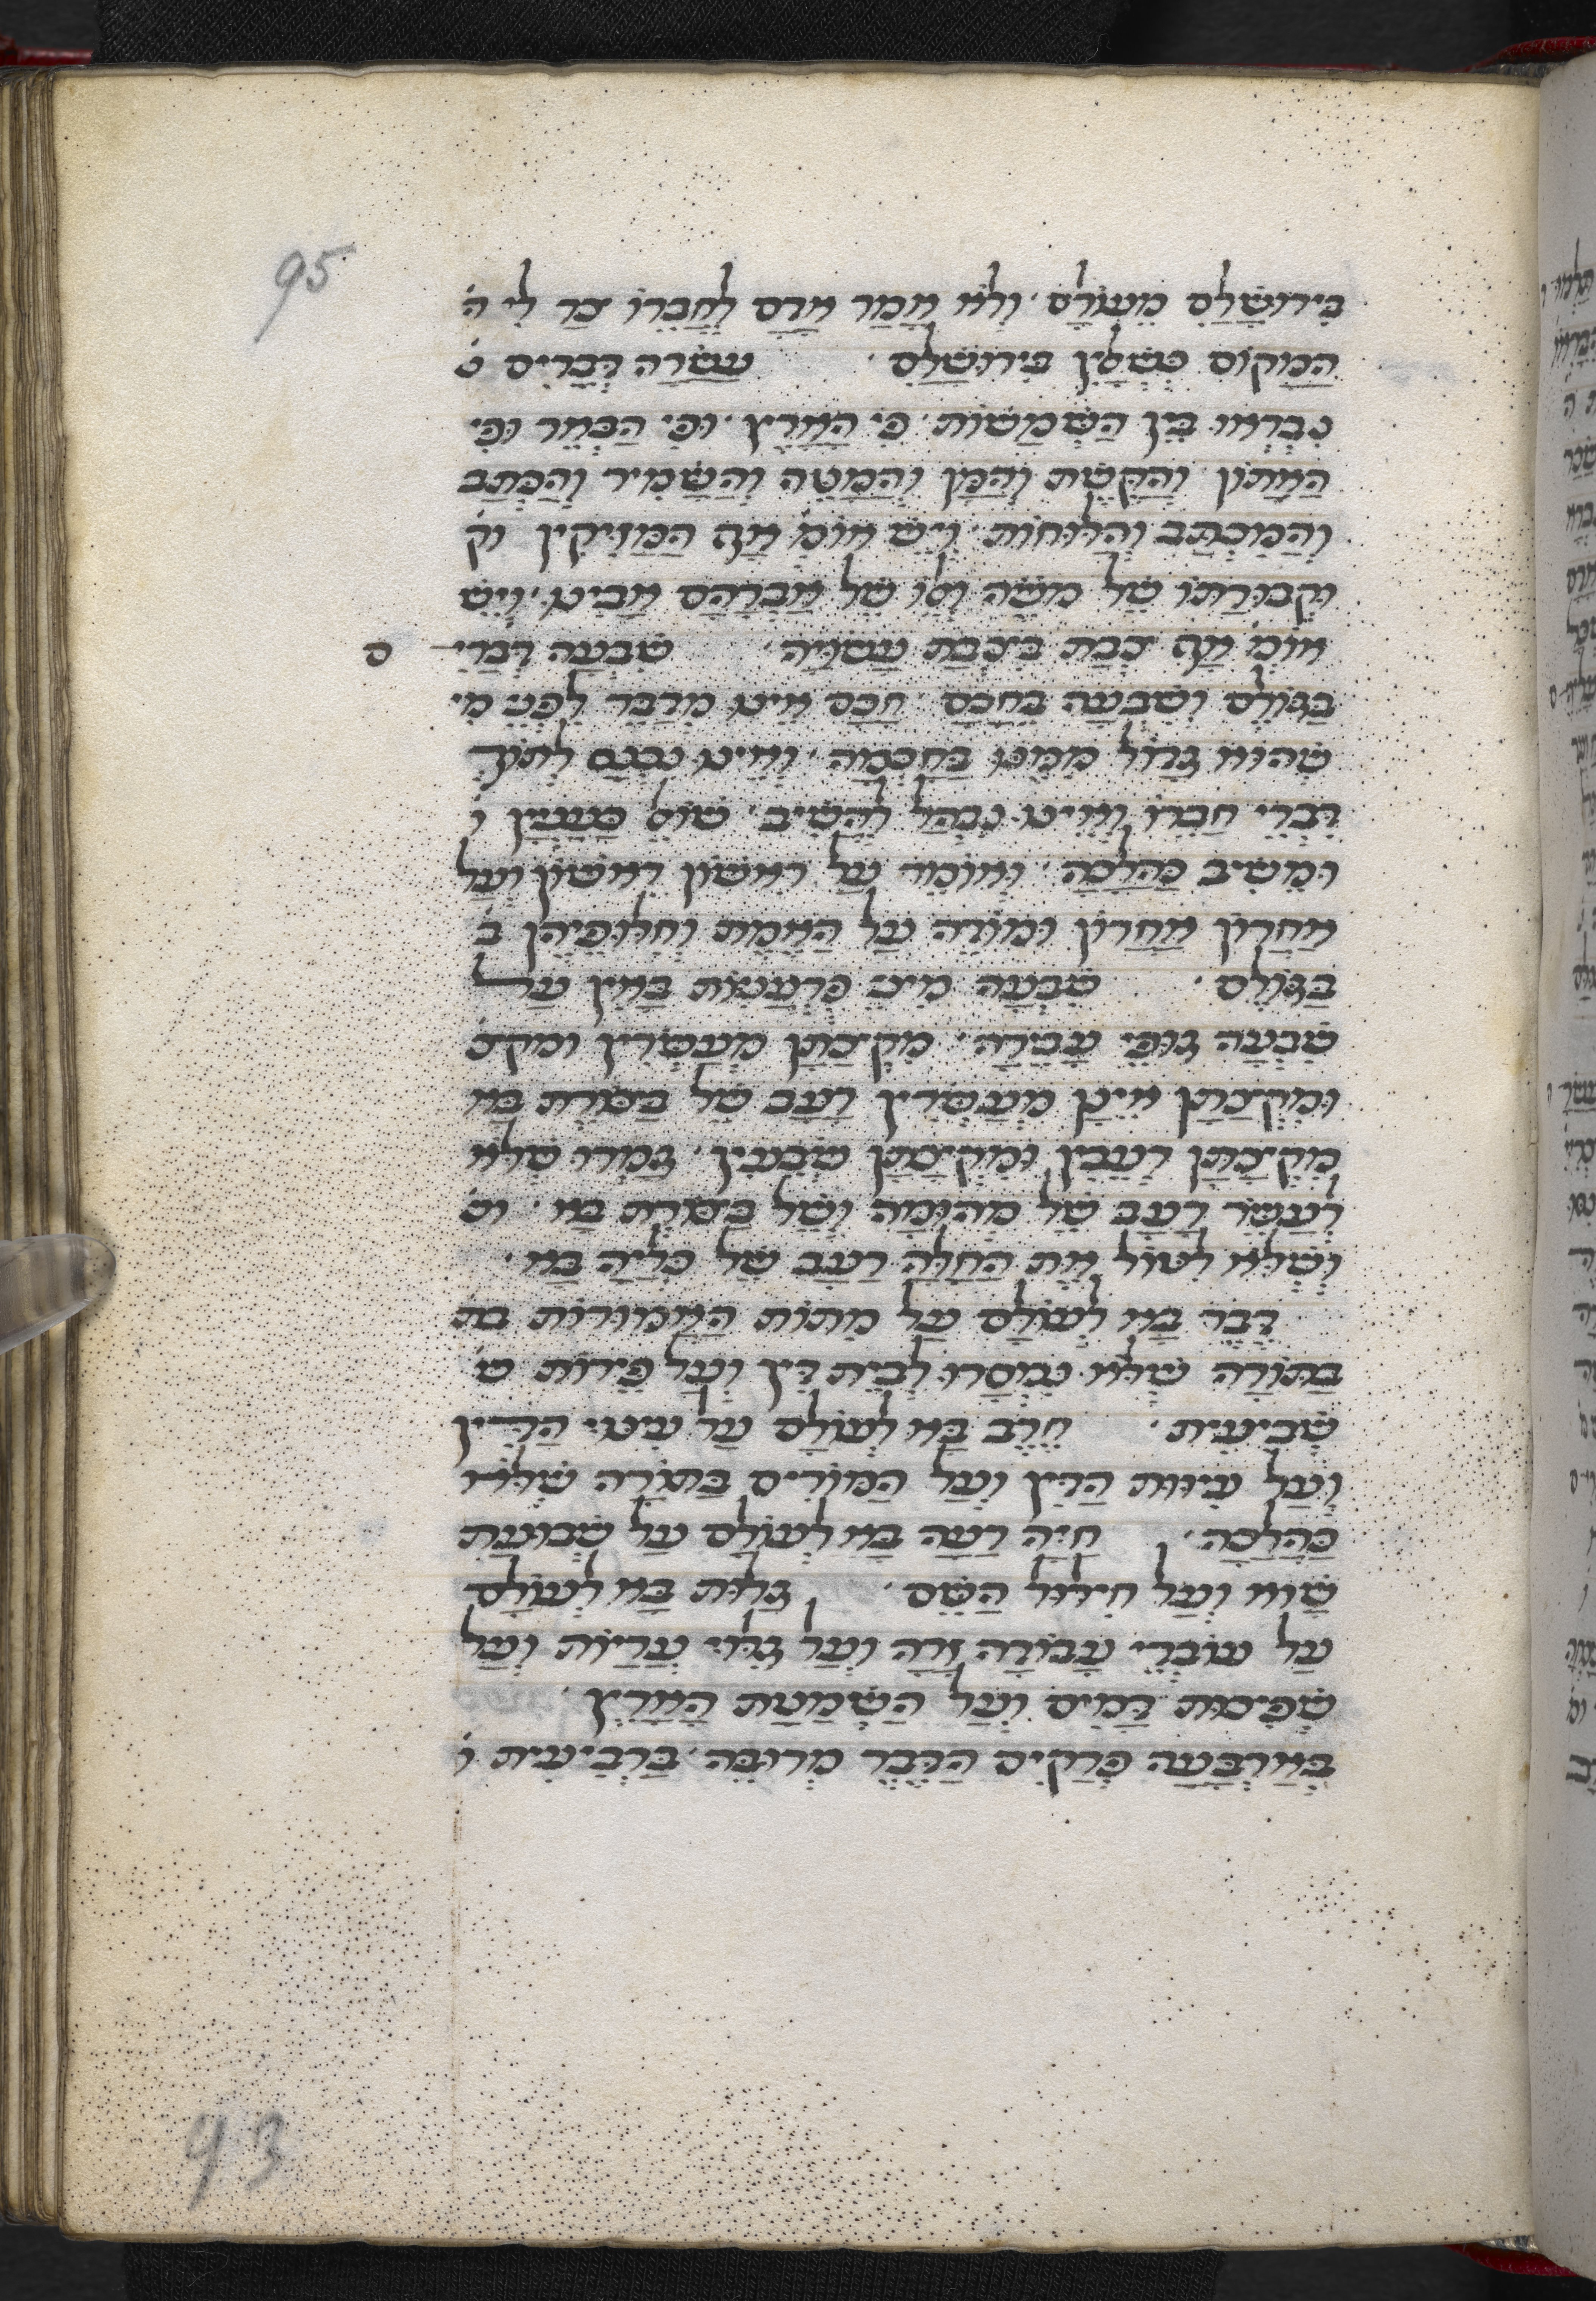 95
בירושלם מעולם ולא אמר אדם לחברו צר לי ה
המקום כשאלין בירושלם עשרה דברים נ
נבראו בין השמשות פי הארץ ופי הבאר ופי
האתון והקשת והמן והמטה והשמיר והכתב
והמכתב והלוחות ויש אומ אף המזיקין וק
וקבורתו של משה ואלו של אברהם אבינו ויש
אומ אף צבת בצבת עשויה שבעה דברי ם
בגולם ושבעה בחכם חכם אינו מדבר לפני מי
שהוא גדול ממנו בחכמה ואינו נכנס לתוך
דברי חברו ואינו נבהל להשיב שואל כעניין ו
ומשיב כהלכה ואומר על ראשון ראשון ועל
אחרון אחרון ומודה על האמת וחלופיהן ב
בגולם שבעה מיני פרעניות באין על
שבעה גופי עבירה מקצתן מעשרין ומקצ
ומקצתן אינן מעשרין רעב של בצורת בא
מקצתן רעבין ומקצתן שבעין גמרו שלא
לעשר רעב של מהומה ושל בצורת בא וש
ושלא ליטול את החלה רעב של כליה בא
דבר בא לעולם על מתות האמורות בת
בתורה שלא נמסרו לבית דין ועל פירות ש
שביעית חרב בא לעולם על עינוי הדין
ועל עיוות הדין ועל המורים בתורה שלא
כהלכה חיה רעה בא לעולם על שבועת
שוא ועל חילול השם גלות בא לעולם
על עוברי עבודה זרה ועל גלוי עריות ועל
שפיכות דמים ועל השמטת הארץ
בארבעה פרקים הדבר מרובה ברביעית ו
93